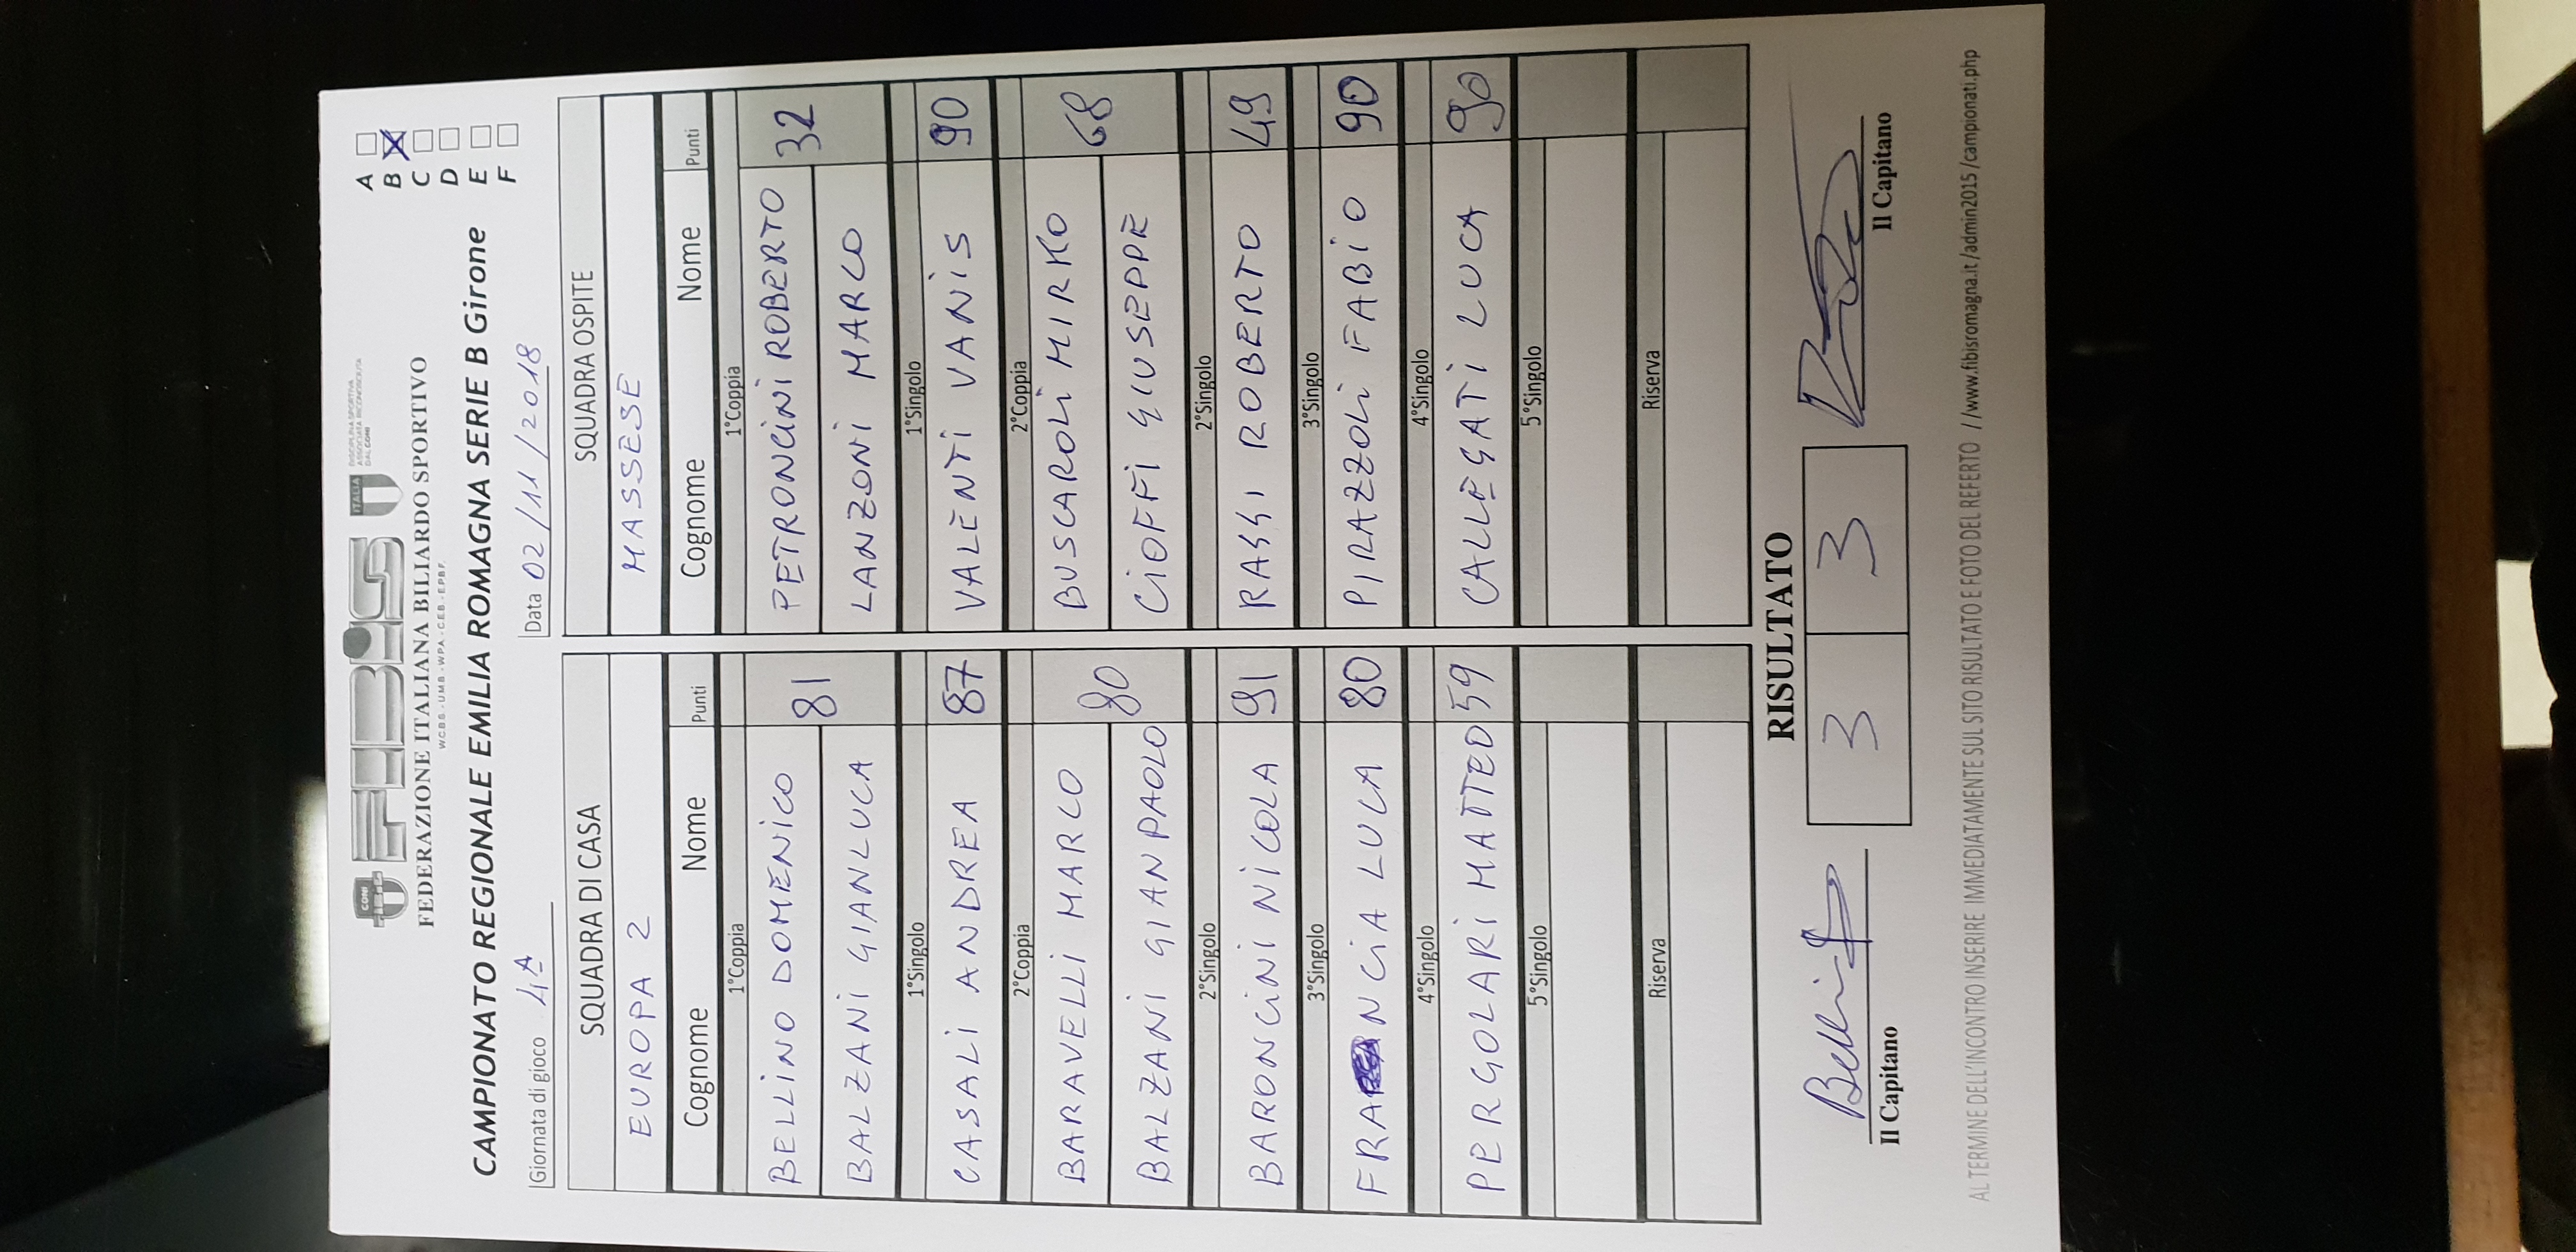 CONI
FIBiS
ITALIA
DISCIPLINA SPORTIVA
ASSOCIATA RICONOSCIUTA
DAL CONI
FEDERAZIONE ITALIANA BILIARDO SPORTIVO
W.C.B.S. - U.M.B. - W.P.A. - C.E.B. - E.P.B.F.
CAMPIONATO REGIONALE EMILIA ROMAGNA SERIE B Girone
A
B X
C
D
E
F
Giornata di gioco 4A
Data 02/11/2018
SQUADRA DI CASA
EUROPA 2
Cognome Nome Punti
1°Coppia
BELLINO DOMENICO 81
BALZANI GIANLUCA
1°Singolo
CASALI ANDREA 87
2°Coppia
BARAVELLI MARCO 80
BALZANI GIANPAOLO
2°Singolo
BARONCINI NICOLA 91
3°Singolo
FRANCIA LUCA 80
4°Singolo
PERGOLARI MATTEO 59
5°Singolo
Riserva
SQUADRA OSPITE
MASSESE
Cognome Nome Punti
1°Coppia
PETRONCINI ROBERTO 32
LANZONI MARCO
1°Singolo
VALENTI VANIS 90
2°Coppia
BUSCAROLI MIRKO 68
CIOFFI GIUSEPPE
2°Singolo
RASSI ROBERTO 49
3°Singolo
PIRAZZOLI FABIO 90
4°Singolo
CALLEGATI LUCA 90
5°Singolo
Riserva
RISULTATO
3 3
Il Capitano
Il Capitano
AL TERMINE DELL'INCONTRO INSERIRE IMMEDIATAMENTE SUL SITO RISULTATO E FOTO DEL REFERTO //www.fibisromagna.it/admin2015/campionati.php